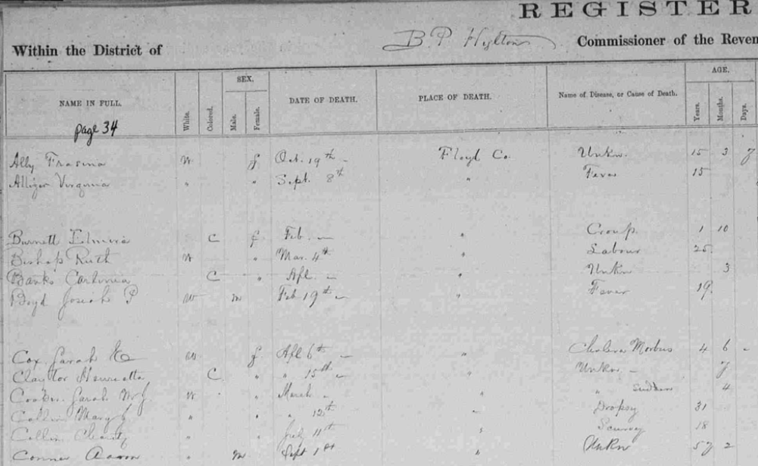 REGISTER
Within the District of B P Hylton Commissioner of the Reven
NAME IN FULL. White. Colored. SEX. Male. Female. DATE OF DEATH. PLACE OF DEATH. Name of Disease, or Cause of Death. AGE. Years. Months. Days.
page 34
Ally W f Oct. 19th Floyd Co Unkn 15 3 7
Virginia " " Sept. 8th " Fever 15
Burnett C f Feb " Croup 1 10
Bishop Ruth W " Mar. 4th " Labour 25
Banks C " Apl " Unkn 3
Boyd Joseph P W m Feb 19th " Fever 19
Cox Sarah W f Apl 6th " Cholera Morbus 4 6
Henrietta C " " 15th " Unkn 7
Sarah W " March " " Sudden 4
Mary " " " 12th " Dropsy 31
" " July 11th " 18
Conner Aaron " m Sept 1st " Unkn 57 2